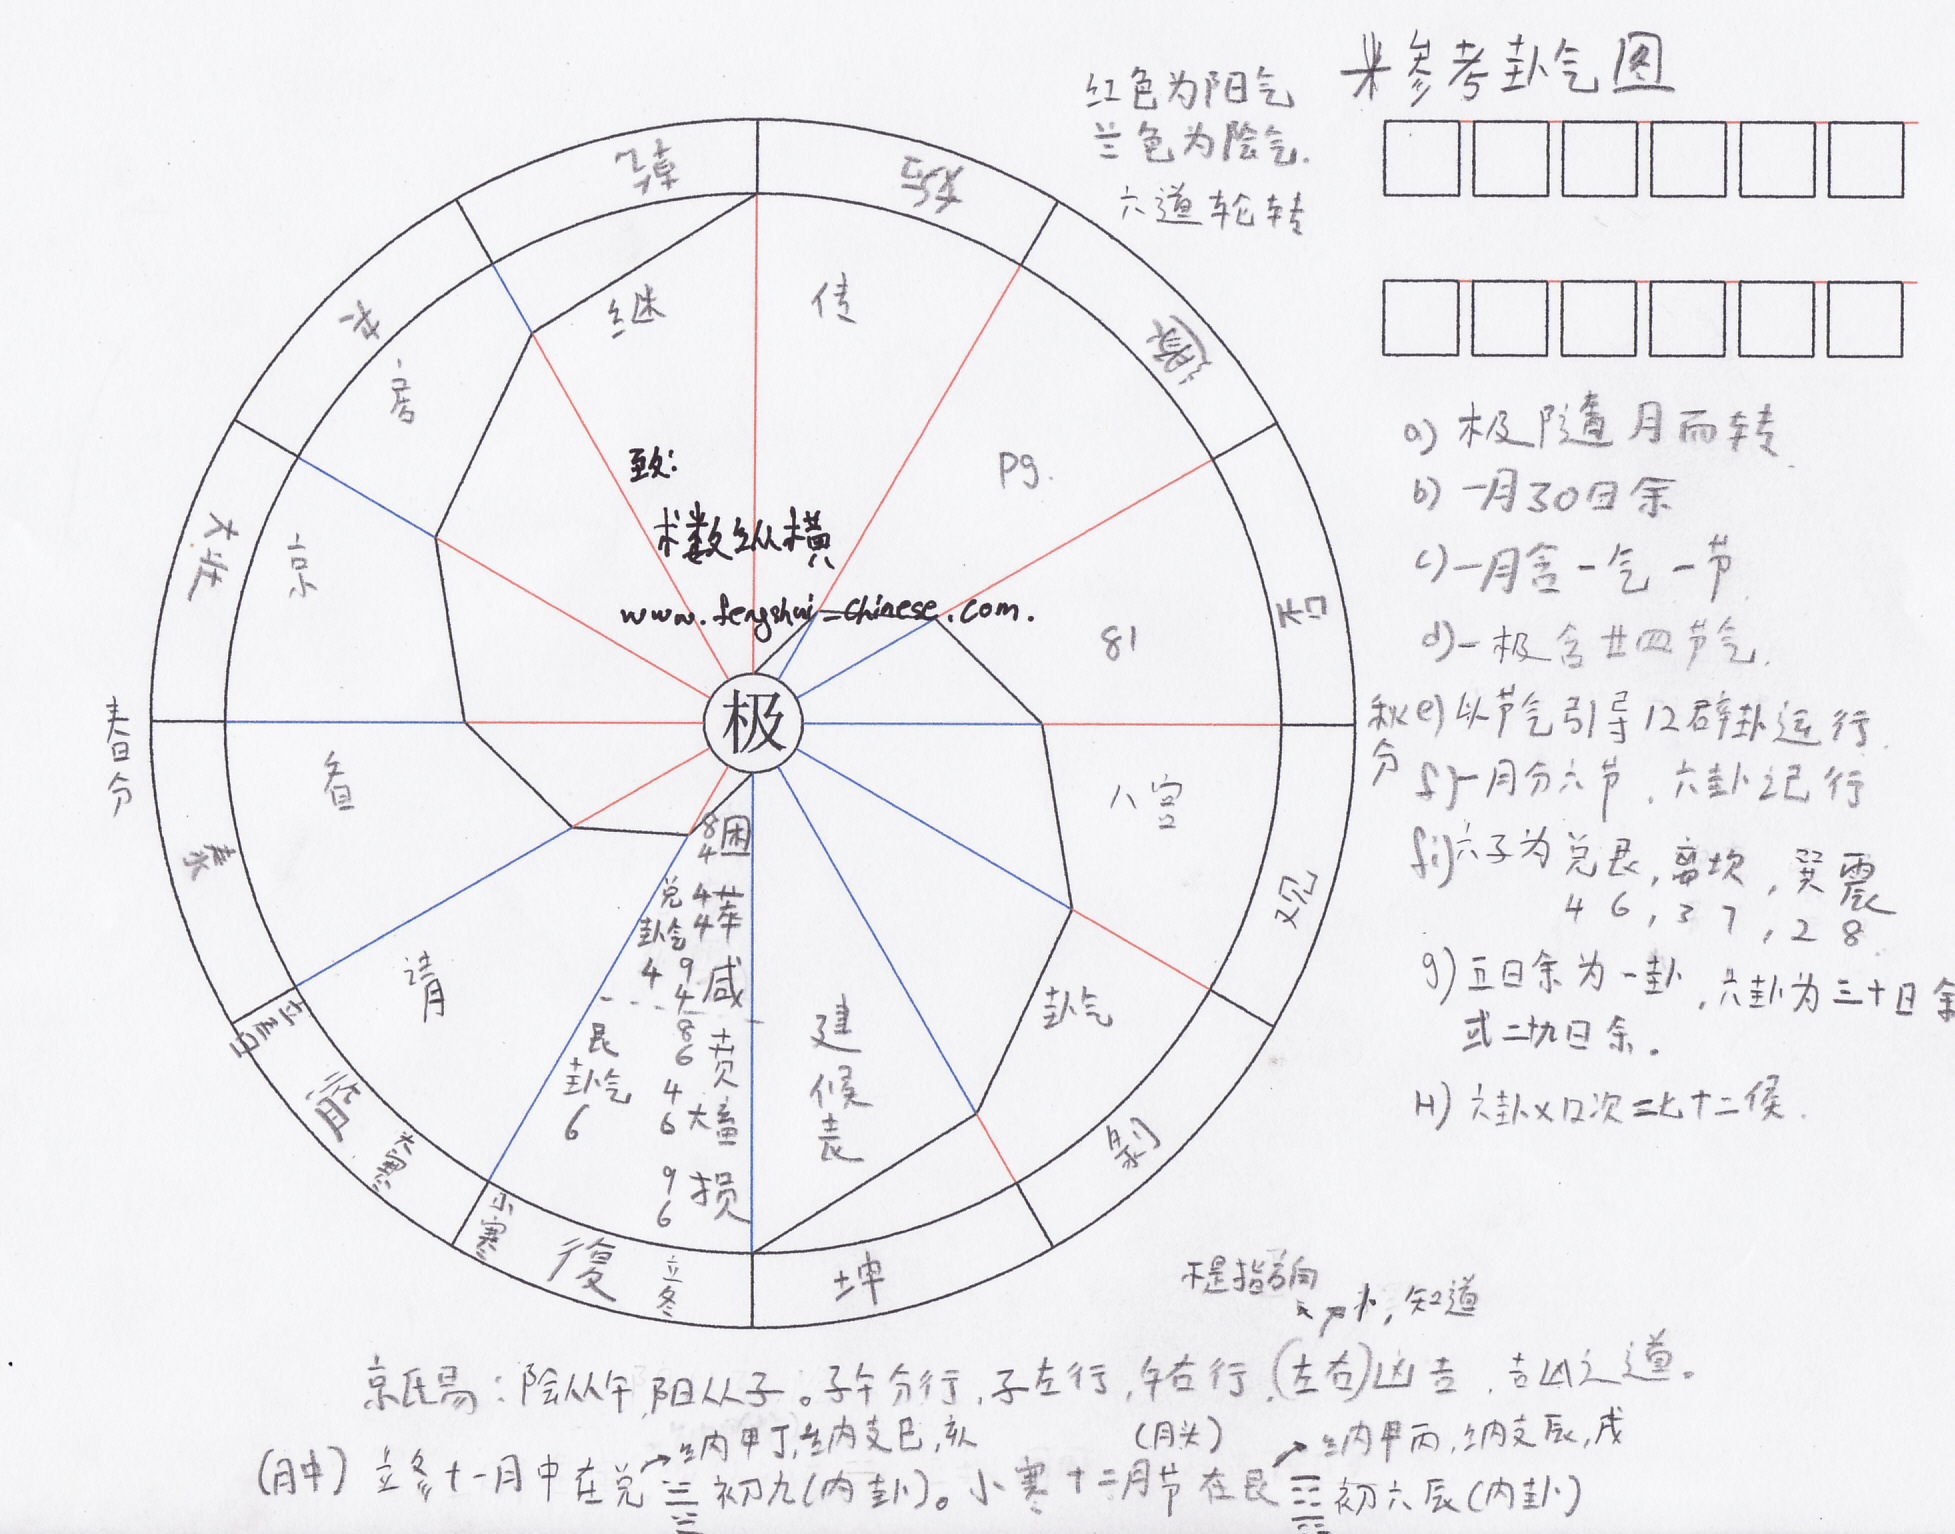 *参考卦气图
红色为阳气
兰色为阴气.
六道轮转
a) 极随月而转
b) 一月30日余
c) 一月含一气一节
d) 一极含廿四节气.
e) 以节气引导12辟卦运行.
f) 一月分六节,六卦之已行
fi) 六子为兑艮,离坎,巽震
4 6, 3 7, 2 8
g) 五日余为一卦,六卦为三十日余
或二十九日余.
H) 六卦x12次=七十二候.
乾
姤
否
观
剥
坤
復
临
泰
大壮
夬
春分
秋分
立冬
小寒
大寒
继
传
房
京
P9.
81
八宫
卦气
建候表
致:
术数纵横
www.fengshui-chinese.com.
极
查
请
84 困
44 萃
94 咸
86 贲
46 大畜
96 损
兑卦气4
艮卦气6
不是指方向
知道
京氏易:阴从午,阳从子。子午分行,子左行,午右行,(左右)凶吉,吉凶之道。
纳甲丁,纳支巳,亥
(月头)
纳甲丙,纳支辰,戌
(月中) 立冬十一月中在兑 ☱ 初九(内卦)。小寒十二月节在艮 ☶ 初六辰(内卦)